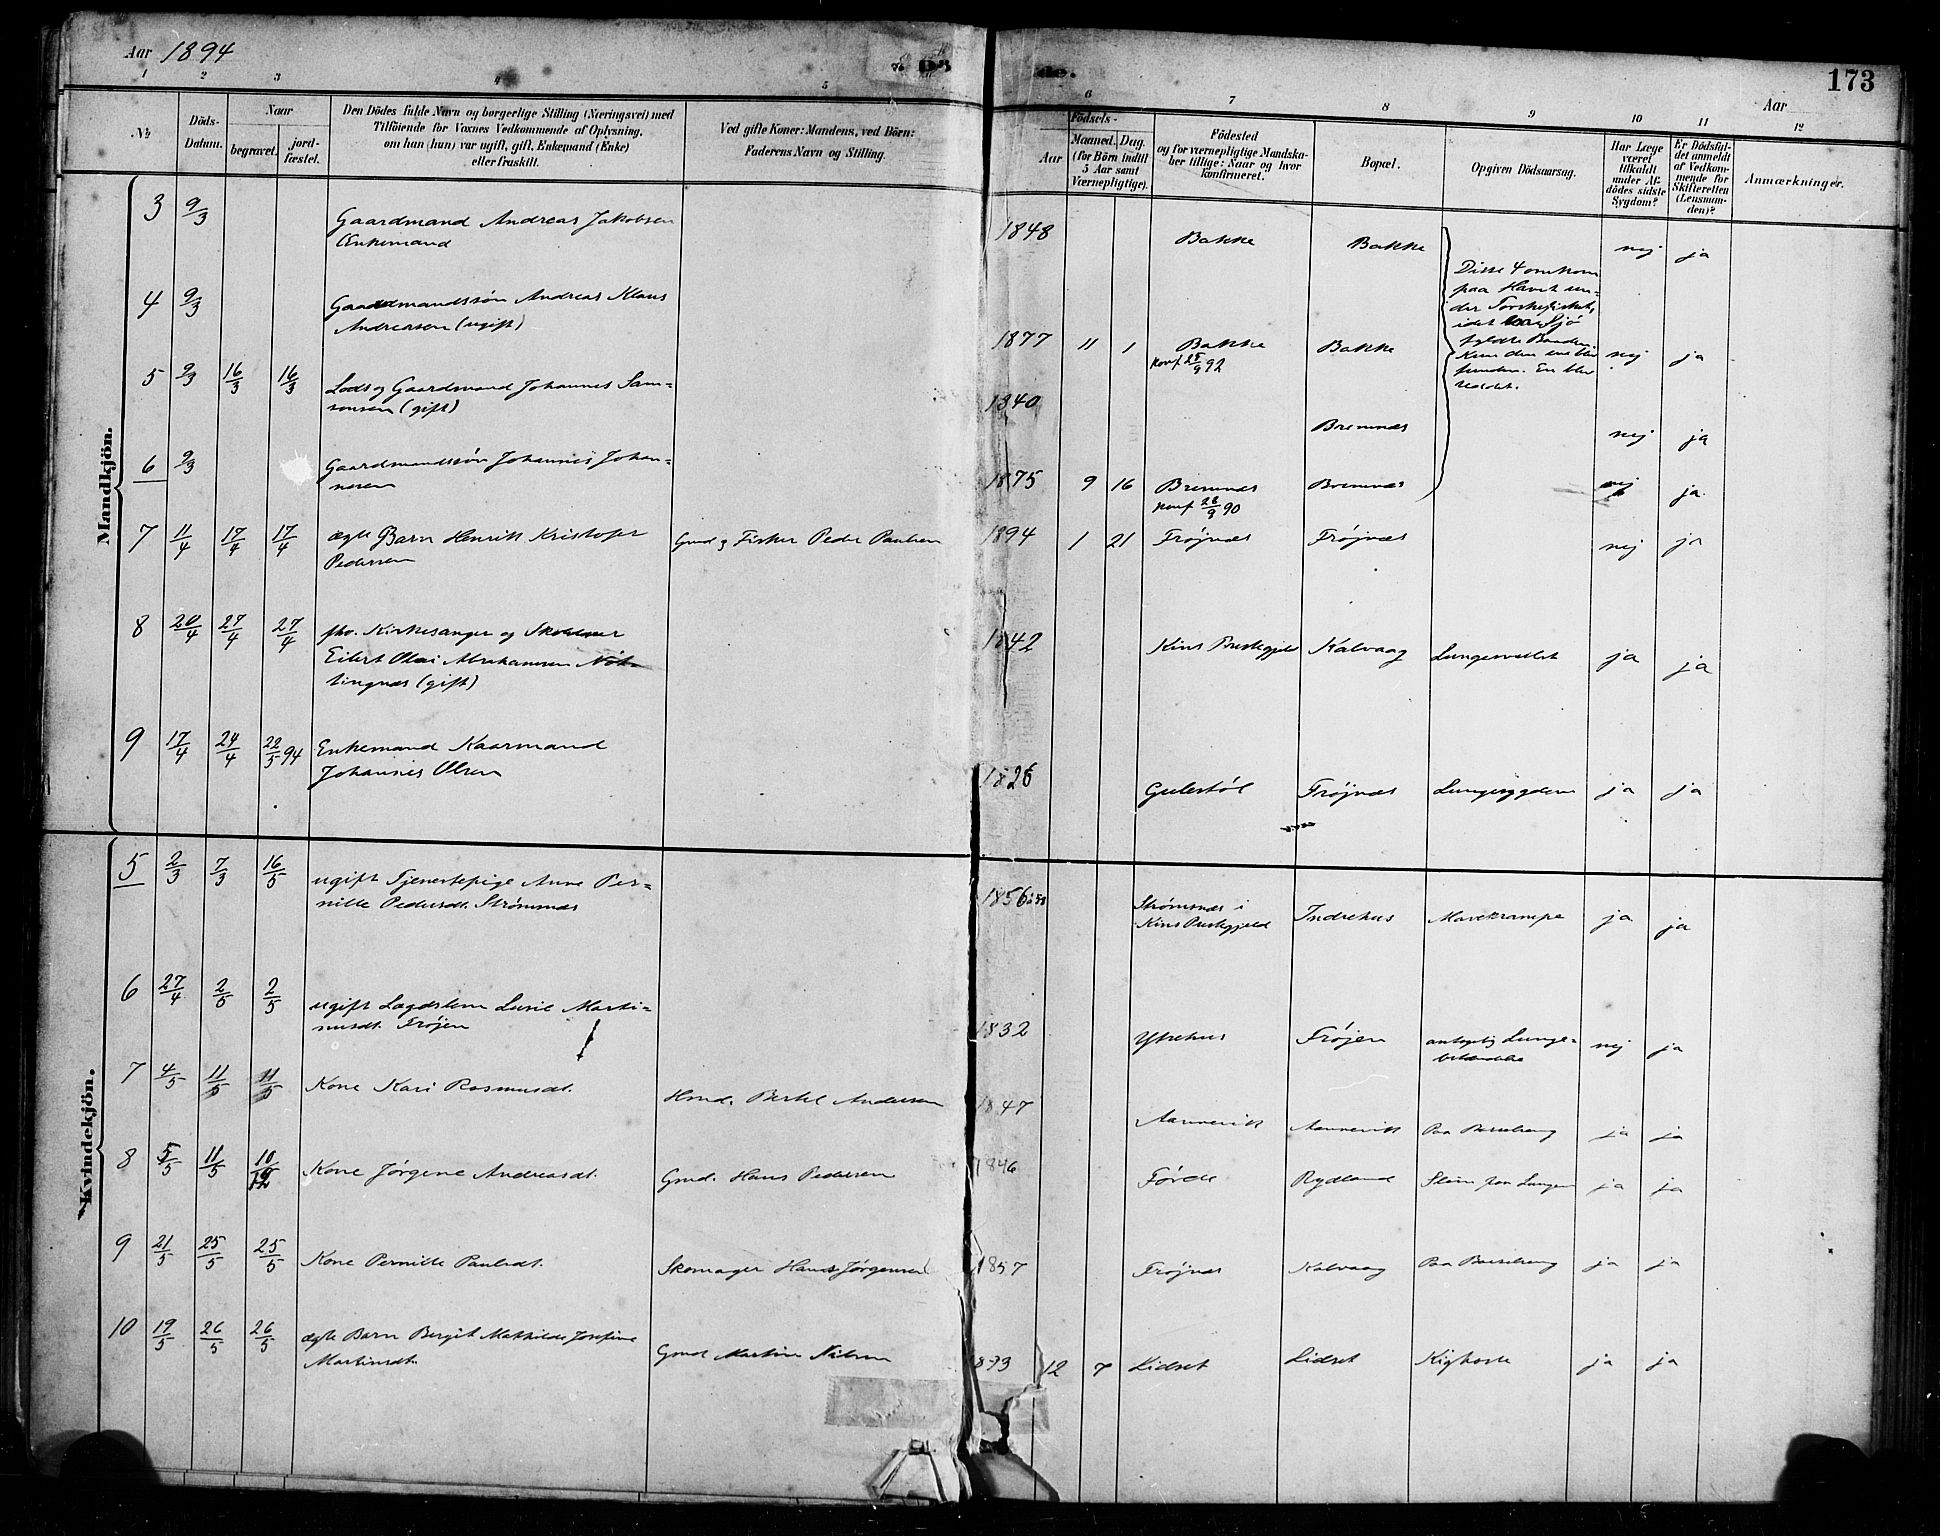 Aar 1894
173
Aar
1 2 3 4 5 6 7 8 9 10 11 12
No
Döds-
Datum.
Naar
begravet.
jord-
fæstet.
Den Dödes fulde Navn og borgerlige Stilling (Næringsvei) med
Tilföiende for Voxnes Vedkommende af Oplysning,
om han (hun) var ugift, gift, Enkemand (Enke)
eller fraskilt.
Ved gifte Koner: Mandens, ved Börn:
Faderens Navn og Stilling.
Födsels-
Aar
Maaned. Dag.
(for Börn indtil
5 Aar samt
Værnepligtige).
Födested
og for værnepligtige Mandska-
ber tillige: Naar og hvor
konfirmeret.
Bopæl.
Opgiven Dödsaarsag.
Har Læge
været
tilkaldt
under Af-
dödes sidste
Sygdom?
Er Dödsfal-
det anmeldt
af Vedkom-
mende for
Skifteretten
(Lensman-
den)?
Anmærkninger.
Mandkjön.
3 9/3 Gaardmand Andreas Jakobsen 1848 Bakke Bakke nej ja
Enkemand
Disse 4 omkom
paa Havet un-
der Torskefisket,
idet Sjö
fyldte Baaden.
Kun den ene blev
funden. En blev
reddet.
4 9/3 Gaardmandssön Andreas Klaus 1877 11 1 Bakke Bakke nej ja
Andreasen (ugift)
konf 25/9 92
5 9/3 16/3 16/3 Lods og Gaardmand Johannes Sam- 1840 Bremnæs nej ja
sonsen (gift)
6 9/3 Gaardmandssön Johannes Johan- 1875 9 16 Bremnæs Bremnæs nej ja
nesen
konf 28/9 90
7 11/4 17/4 17/4 ægte Barn Henrik Kristofer Gmd og Fisker Peder Paulsen 1894 1 21 Fröjnæs Fröjnæs nej ja
Pedersen
8 20/4 27/4 27/4 fhv. Kirkesanger og Skolelærer 1842 Kins Prestegjeld Kalvaag ja ja
Eilert Olai Abrahamsen
(gift)
9 17/4 24/4 22/5 94 Enkemand Kaarmand 1826 Gulestöl Fröjnæs Lungesygdom ja ja
Johannes Olsen
Kvindekjön.
5 2/3 7/3 16/5 ugift Tjenestepige Anne Per- 1856 Strömnæs i Indrehus Mavekrampe ja ja
nille Pedersdt. Strömnæs Kins Prestegjeld
6 27/4 2/5 2/5 ugift Lægdslem Lusie Marti- 1832 Ytrehus Fröjen antagelig Lunge- nej ja
nusdt. Fröjen betændelse
7 4/5 11/5 11/5 Kone Kari Rasmusdt. Hmd. Bertel Andersen 1847 Aannevik Aannevik Paa Barselseng ja ja
8 5/5 11/5 10/12 Kone Jörgine Andreasdt. Gmd. Hans Pedersen 1846 Förde Rydland Sliim paa Lungen ja ja
9 21/5 25/5 25/5 Kone Pernille Paulsdt. Skomager Hans Jörgensen 1857 Fröjnæs Kalvaag Paa Barselseng ja ja
10 19/5 26/5 26/5 ægte Barn Bergit Mathilde Josefine Gmd Martin Nilsen 1893 12 7 Lidset Lidset Kighoste ja ja
Martinsdt.